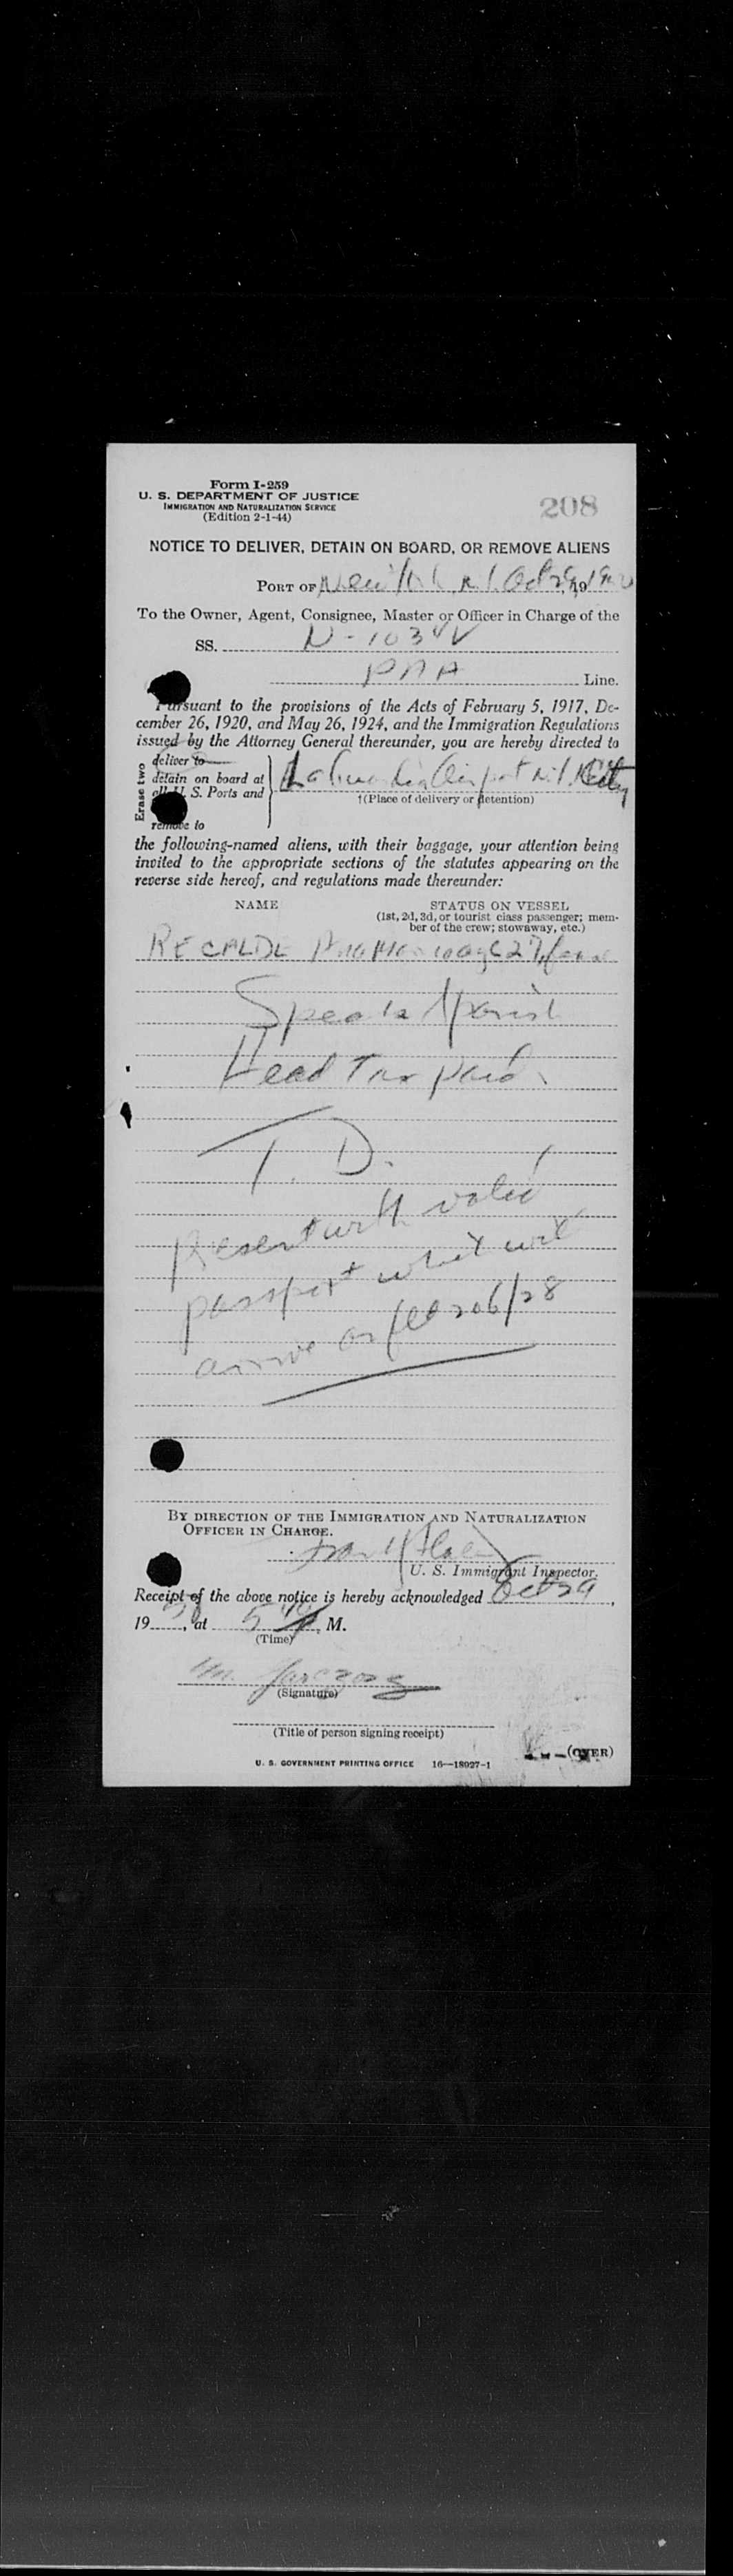 Form I-259
U. S. DEPARTMENT OF JUSTICE
IMMIGRATION AND NATURALIZATION SERVICE
(Edition 2-1-44)
208
NOTICE TO DELIVER, DETAIN ON BOARD, OR REMOVE ALIENS
PORT OF New York N.Y. Oct 29, 19
To the Owner, Agent, Consignee, Master or Officer in Charge of the
SS. N-1034V
PAA Line.
Pursuant to the provisions of the Acts of February 5, 1917, De-
cember 26, 1920, and May 26, 1924, and the Immigration Regulations
issued by the Attorney General thereunder, you are hereby directed to
Erase two
deliver to
detain on board at
all U. S. Ports and
remove to
Airport N.Y. City
†(Place of delivery or detention)
the following-named aliens, with their baggage, your attention being
invited to the appropriate sections of the statutes appearing on the
reverse side hereof, and regulations made thereunder:
NAME
STATUS ON VESSEL
(1st, 2d, 3d, or tourist class passenger; mem-
ber of the crew; stowaway, etc.)
RECALDE age 27
Speaks Spanish
Head Tax paid
T. D.
Present with valid
passport which will
arrive on 206/28
BY DIRECTION OF THE IMMIGRATION AND NATURALIZATION
OFFICER IN CHARGE.
U. S. Immigrant Inspector.
Receipt of the above notice is hereby acknowledged Oct 29,
19, at 5 M.
(Time)
(Signature)
(Title of person signing receipt)
(OVER)
U. S. GOVERNMENT PRINTING OFFICE 16—18027-1